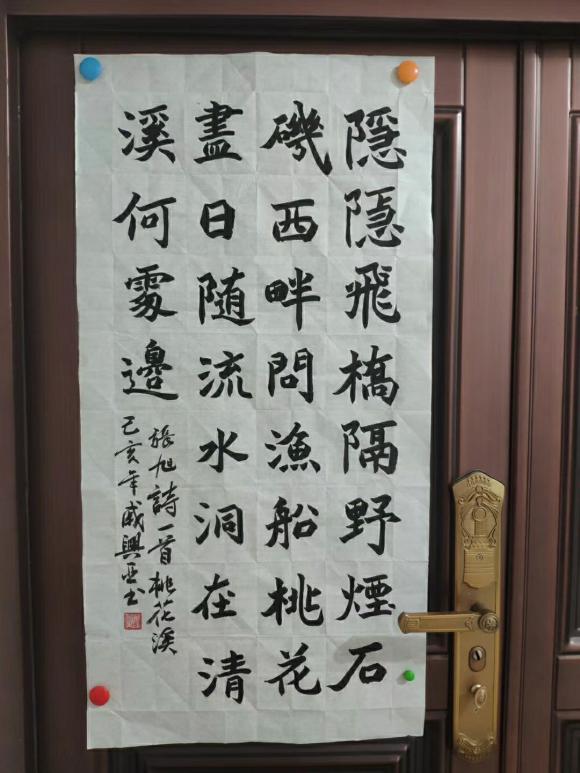 隱隱飛橋隔野煙石
磯西畔問漁船桃花
盡日随流水洞在清
溪何處邊
張旭詩一首桃花溪
己亥年盛興亞书